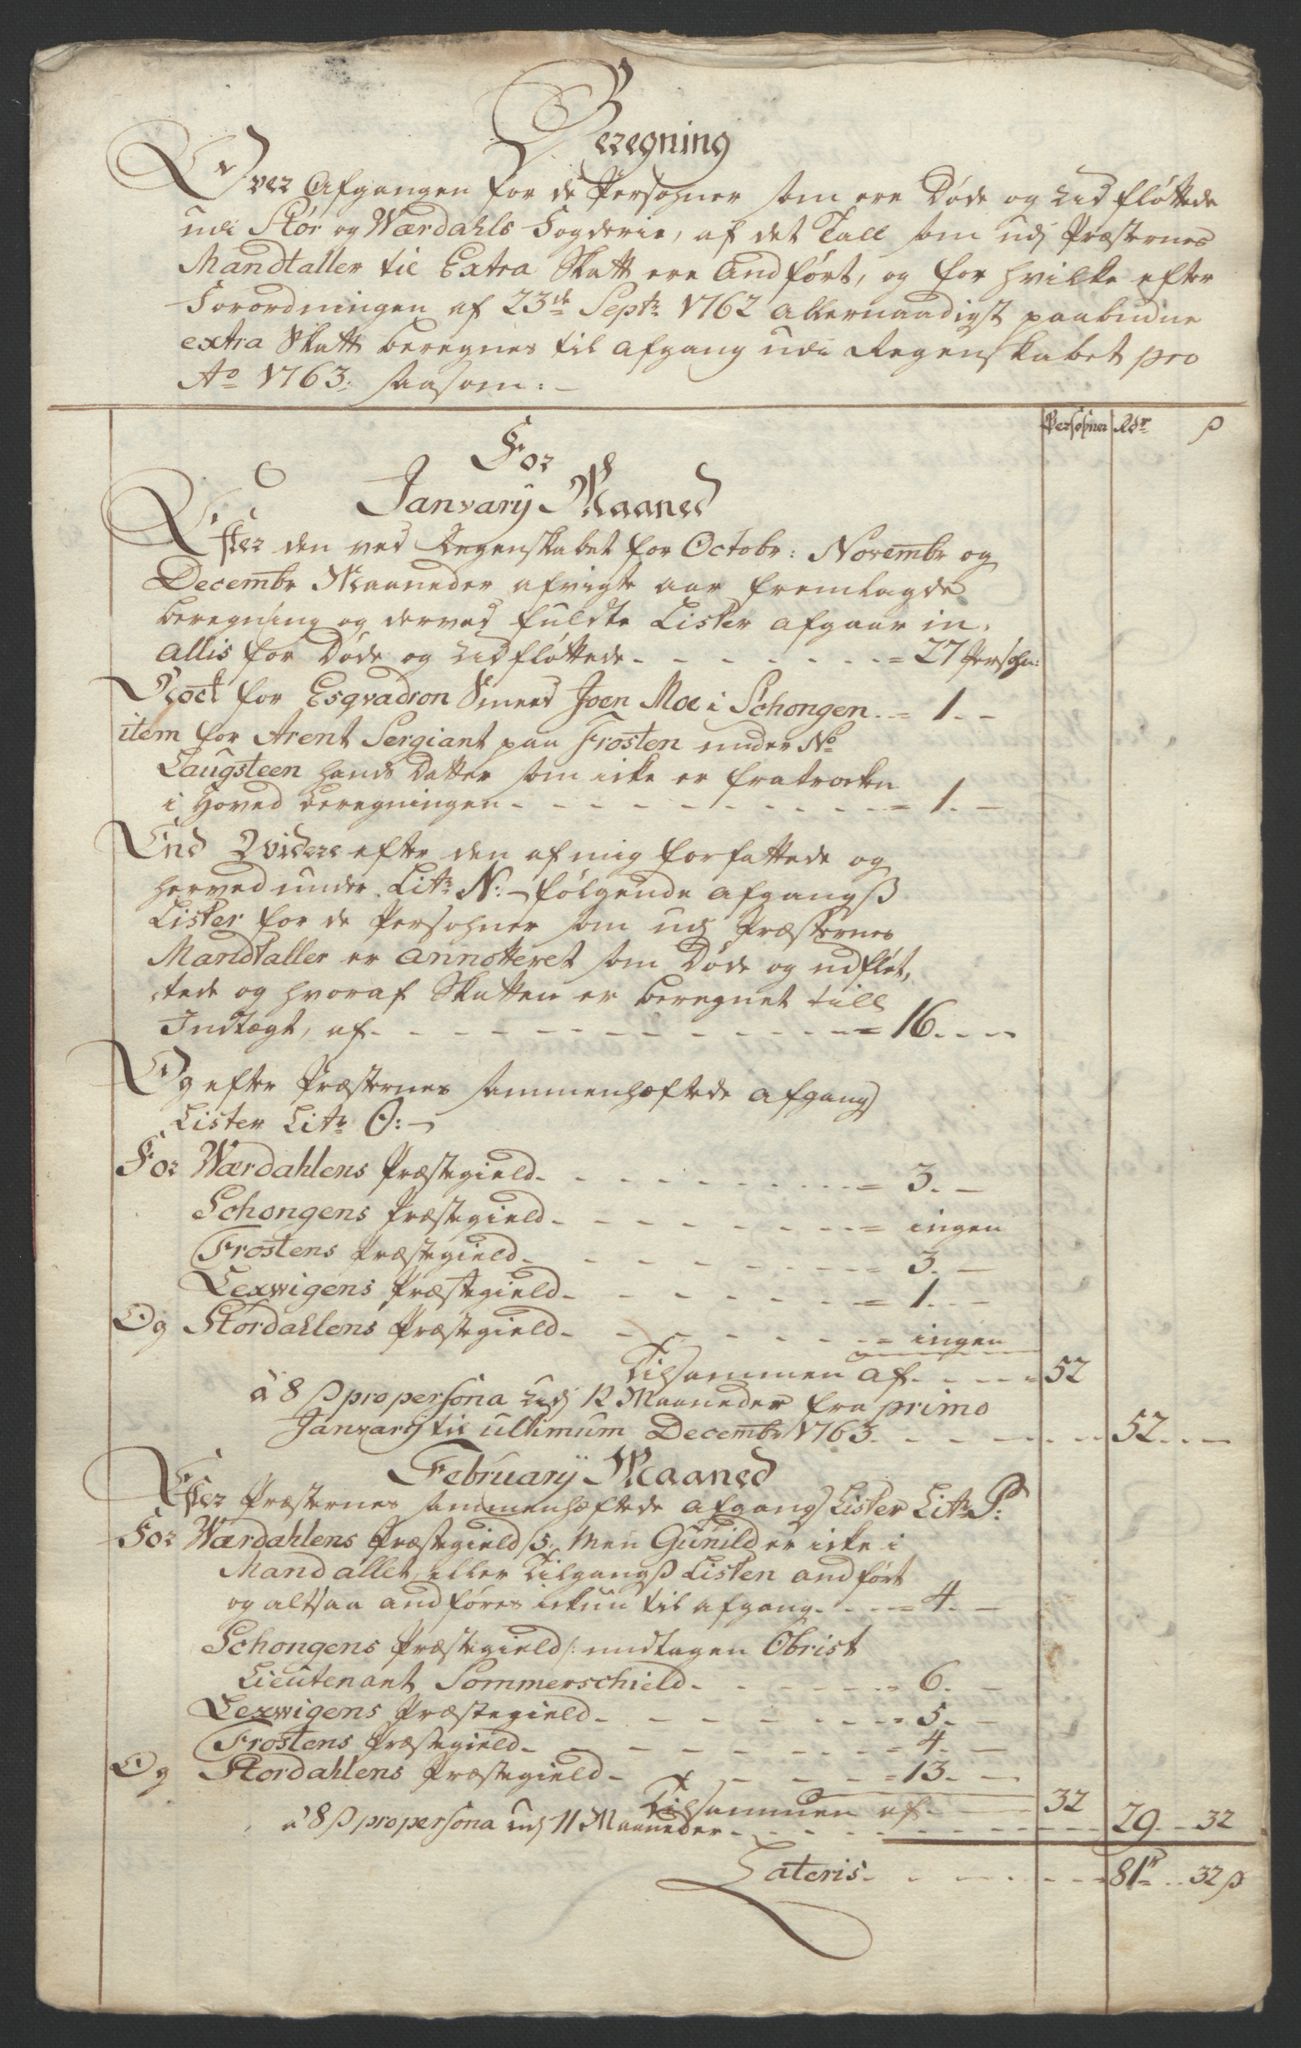 Beregning
Over Afgangen for de Persohner som ere Døde og Udfløttede
udi Stør og Værdahls Fogderie, af det Tall som udj Præsternes
Mandtaller til Extra Skatt ere Andført, og for hvilke efter
Forordningen af 23de Septr 1762 allernaadigst paabudne
extra Skatt beregnes til afgang udi Regenskabet pro
Ao 1763. saasom:
Persohner Rdr ß
For
Janvarij Maaned
Efter den ved Regenskabet for Octobr: Novembr og
Decembr Maaneder afvigte aar fremlagde
beregning og derved fuldte Lister afgaar in,
allis for Døde og Udfløttede - - - = 27 Persohn:
Nock for Esqvadron Smed Joen Moe i Schongen - = 1. -
item for Arent Sergiant paa Frosten under No
Laugsteen hands Datter som icke er fratrocken
i Hoved beregningen - - - = 1. -
End Videre efter den af mig forfattede og
herved under Litr N: følgende afgangß
Lister for de Persohner som udj Præsternes
Mandtaller er annotteret som Døde og udfløt,
tede og hvoraf Skatten er beregnet till
Indtægt, af - - - = 16. -
Og efter Præsternes sammenhæftede afgangs
Lister Litr O:
For Værdahlens Præstegield - - - = 3. -
Schongens Præstegield - - - = ingen
Frostens Præstegield - - - 3. -
Lexwigens Præstegield - - - = 1. -
Og Stordahlens Præstegield - - - = ingen
Tilsammen af - - - 52
à 8 ß pro persona udj 12 Maaneder fra primo
Janvarij til ultimum Decembr 1763 - - - 52 - -
Februarij Maaned
Efter Præsternes sammenhæftede afgangs Lister Litr P:
For Værdahlens Præstegield 5. Men Gunild er icke i
Mandtallet eller Tilgangß Listen andført
og altsaa andføres ickun til afgang - - = 4. -
Schongens Præstegield /: undtagen Obrist
Lieutenant Sommerschield - - - 6. -
Lexwigens Præstegield - - - = 5. -
Frostens Præstegield - - - 4. -
Og Stordahlens Præstegield - - - = 13. -
Tilsammen af - - 32
à 8 ß pro persona udj 11 Maaneder - - - 29 - 32
Lateris - - - 81r - 32 ß